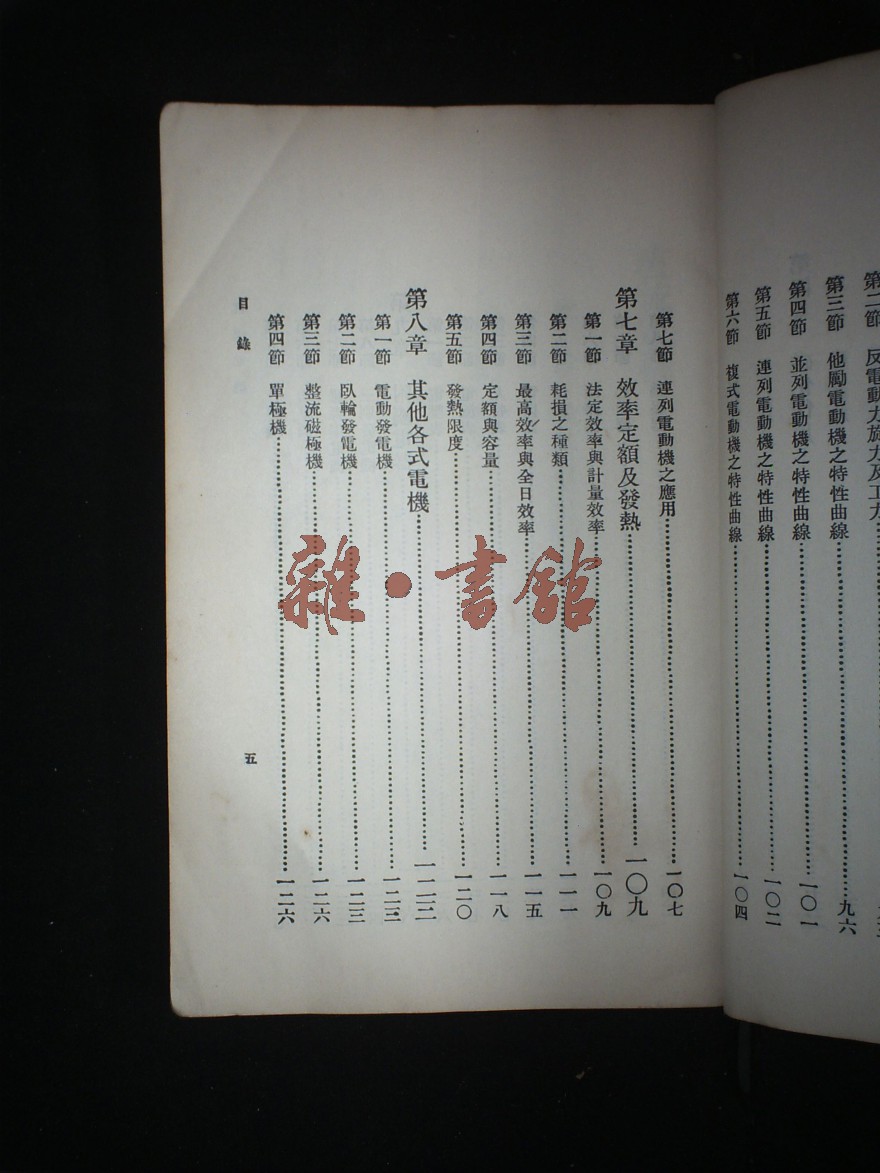 第二節 反電動力旋力及工力
第三節 他勵電動機之特性曲線……九六
第四節 並列電動機之特性曲線……一〇一
第五節 連列電動機之特性曲線……一〇二
第六節 複式電動機之特性曲線……一〇四
第七節 連列電動機之應用……一〇七
第七章 效率定額及發熱……一〇九
第一節 法定效率與計量效率……一〇九
第二節 耗損之種類……一一一
第三節 最高效率與全日效率……一一五
第四節 定額與容量……一一八
第五節 發熱限度……一二〇
第八章 其他各式電機……一二三
第一節 電動發電機……一二三
第二節 臥輪發電機……一二三
第三節 整流磁極機……一二六
第四節 單極機……一二六
目錄
五
雜・書館